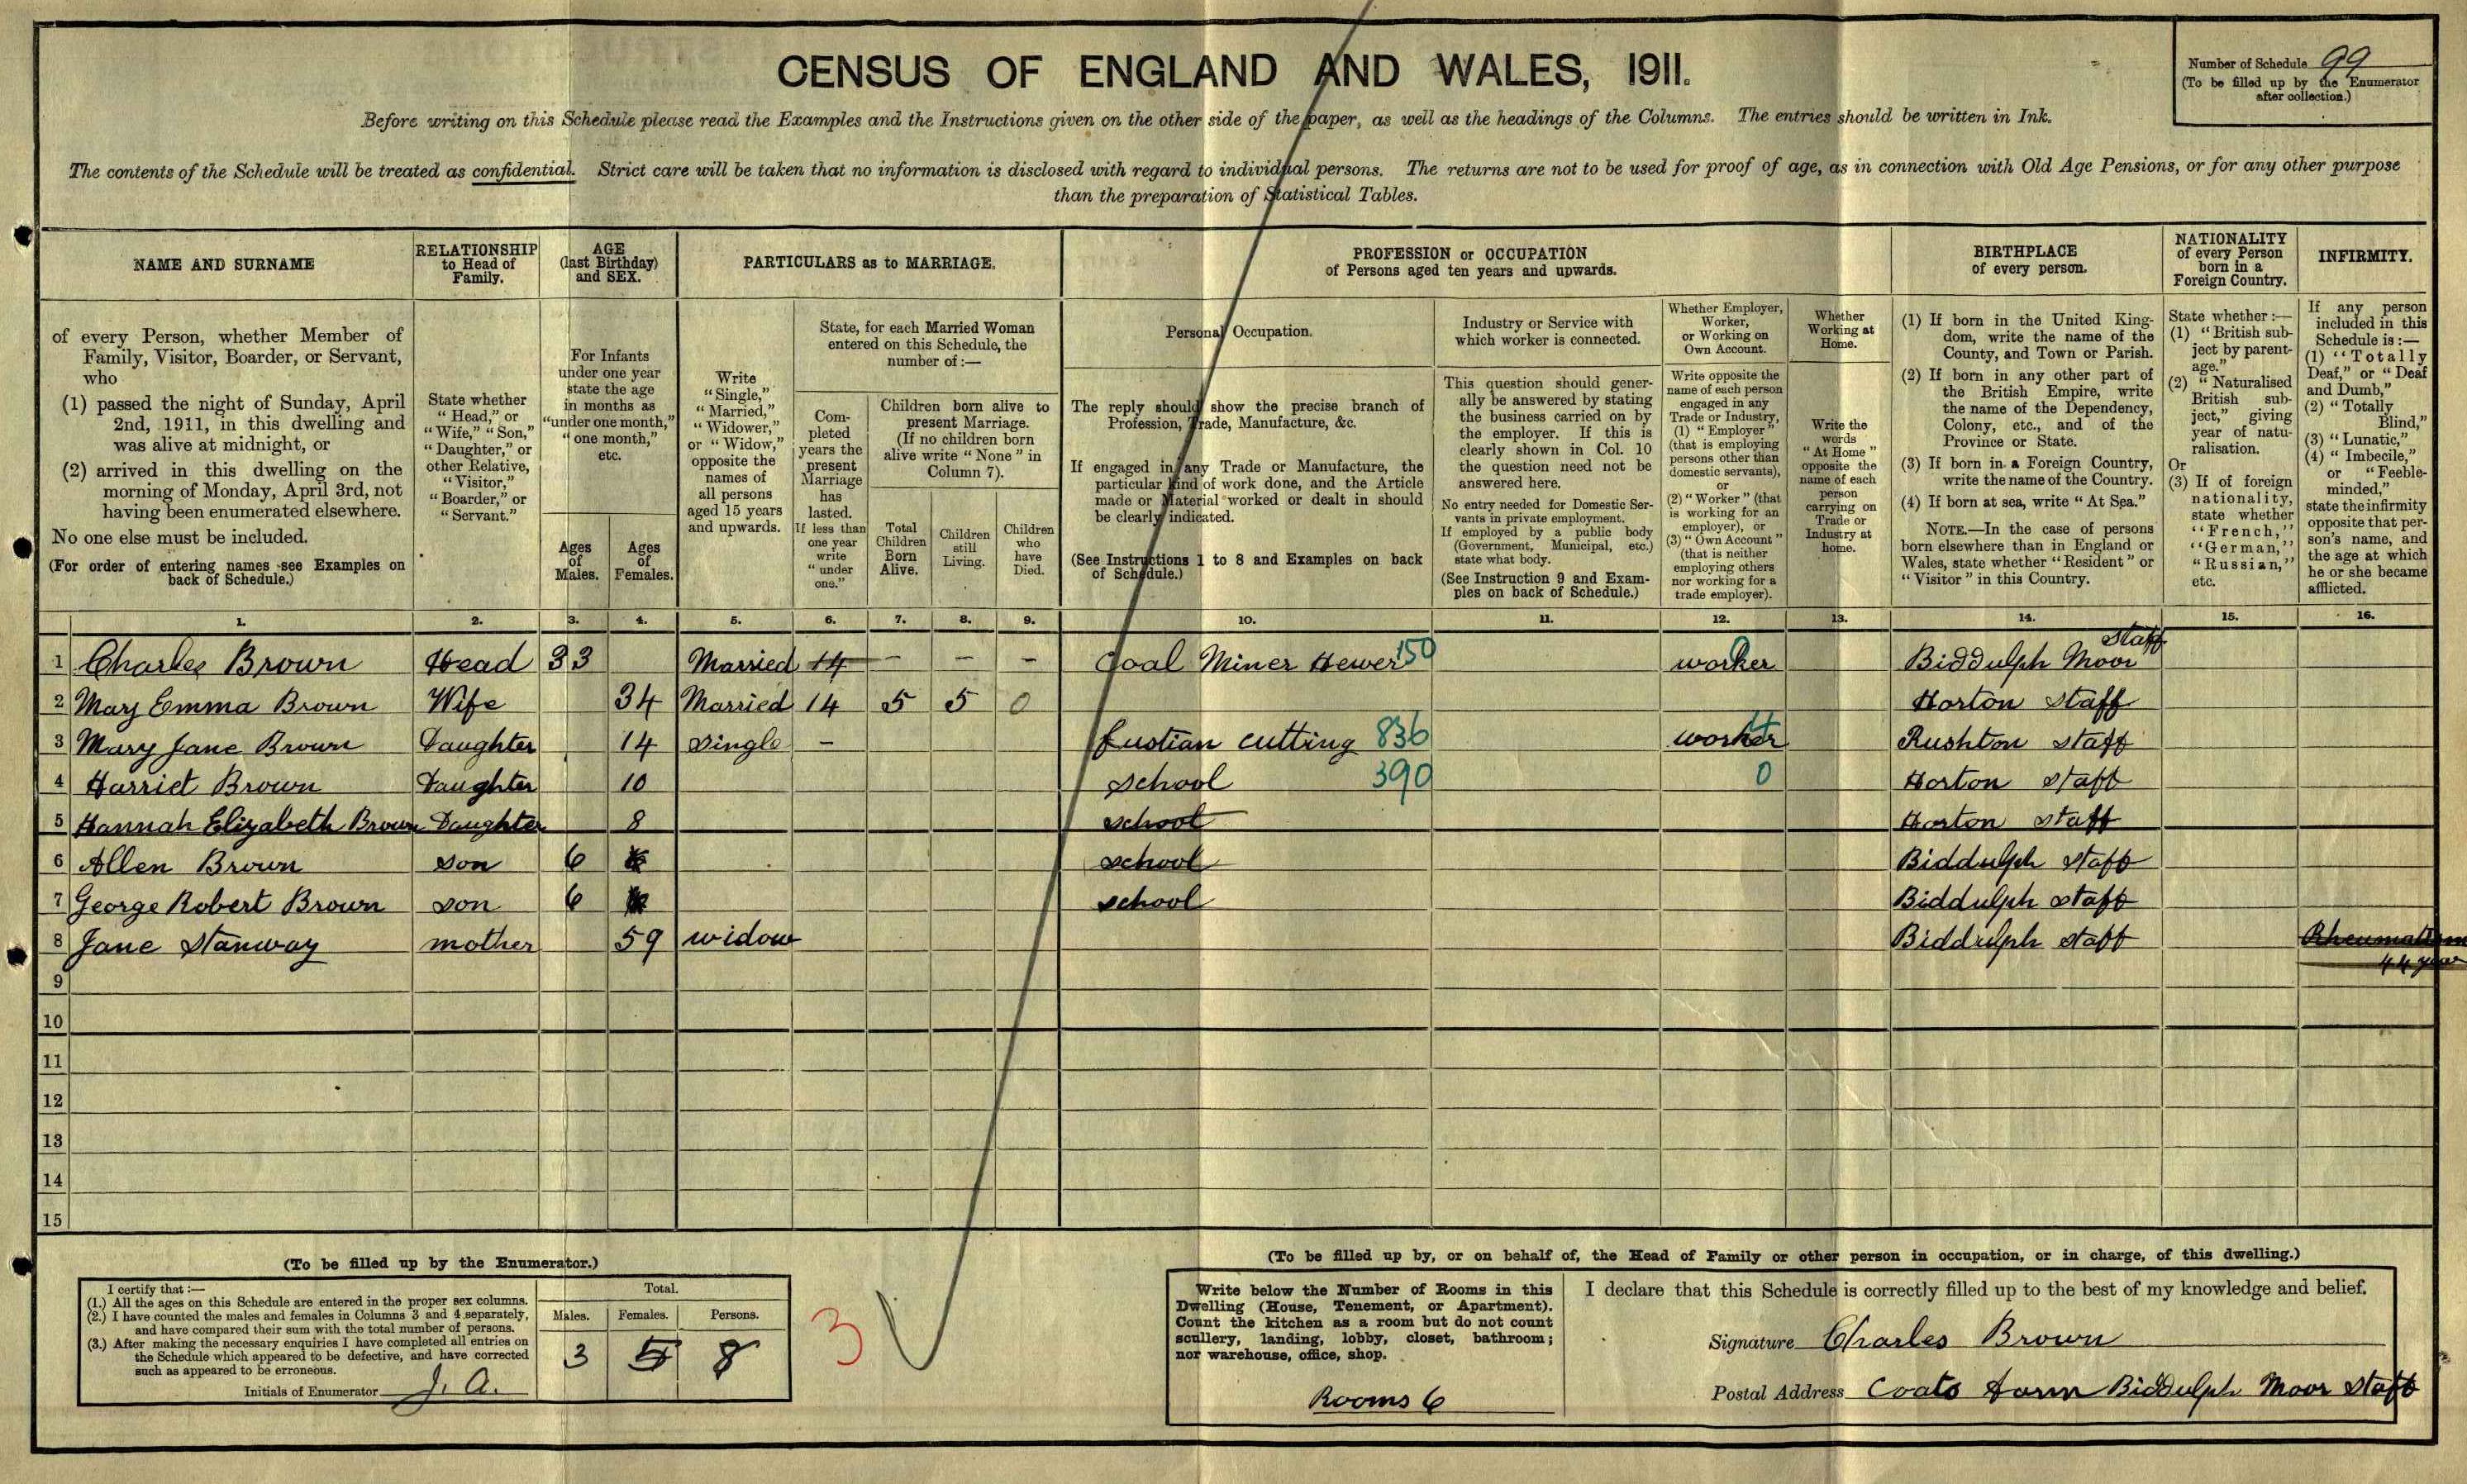 CENSUS OF ENGLAND AND WALES, 1911.
Number of Schedule 99
(To be filled up by the Enumerator
after collection.)
Before writing on this Schedule please read the Examples and the Instructions given on the other side of the paper, as well as the headings of the Columns. The entries should be written in Ink.
The contents of the Schedule will be treated as confidential. Strict care will be taken that no information is disclosed with regard to individual persons. The returns are not to be used for proof of age, as in connection with Old Age Pensions, or for any other purpose
than the preparation of Statistical Tables.
NAME AND SURNAME
of every Person, whether Member of
Family, Visitor, Boarder, or Servant,
who
(1) passed the night of Sunday, April
2nd, 1911, in this dwelling and
was alive at midnight, or
(2) arrived in this dwelling on the
morning of Monday, April 3rd, not
having been enumerated elsewhere.
No one else must be included.
(For order of entering names see Examples on
back of Schedule.)
RELATIONSHIP
to Head of
Family.
State whether
"Head," or
"Wife," "Son,"
"Daughter," or
other Relative,
"Visitor,"
"Boarder," or
"Servant."
AGE
(last Birthday)
and SEX.
For Infants
under one year
state the age
in months as
"under one month,"
"one month,"
etc.
Ages
of
Males.
Ages
of
Females.
PARTICULARS as to MARRIAGE.
Write
"Single,"
"Married,"
"Widower,"
or "Widow,"
opposite the
names of
all persons
aged 15 years
and upwards.
State, for each Married Woman
entered on this Schedule, the
number of :—
Com-
pleted
years the
present
Marriage
has
lasted.
If less than
one year
write
"under
one."
Children born alive to
present Marriage.
(If no children born
alive write "None" in
Column 7).
Total
Children
Born
Alive.
Children
still
Living.
Children
who
have
Died.
PROFESSION or OCCUPATION
of Persons aged ten years and upwards.
Personal Occupation.
The reply should show the precise branch of
Profession, Trade, Manufacture, &c.
If engaged in any Trade or Manufacture, the
particular kind of work done, and the Article
made or Material worked or dealt in should
be clearly indicated.
(See Instructions 1 to 8 and Examples on back
of Schedule.)
Industry or Service with
which worker is connected.
This question should gener-
ally be answered by stating
the business carried on by
the employer. If this is
clearly shown in Col. 10
the question need not be
answered here.
No entry needed for Domestic Ser-
vants in private employment.
If employed by a public body
(Government, Municipal, etc.)
state what body.
(See Instruction 9 and Exam-
ples on back of Schedule.)
Whether Employer,
Worker,
or Working on
Own Account.
Write opposite the
name of each person
engaged in any
Trade or Industry,
(1) "Employer"
(that is employing
persons other than
domestic servants),
or
(2) "Worker" (that
is working for an
employer), or
(3) "Own Account"
(that is neither
employing others
nor working for a
trade employer).
Whether
Working at
Home.
Write the
words
"At Home"
opposite the
name of each
person
carrying on
Trade or
Industry at
home.
BIRTHPLACE
of every person.
(1) If born in the United King-
dom, write the name of the
County, and Town or Parish.
(2) If born in any other part of
the British Empire, write
the name of the Dependency,
Colony, etc., and of the
Province or State.
(3) If born in a Foreign Country,
write the name of the Country.
(4) If born at sea, write "At Sea."
NOTE.—In the case of persons
born elsewhere than in England or
Wales, state whether "Resident" or
"Visitor" in this Country.
NATIONALITY
of every Person
born in a
Foreign Country.
State whether :—
(1) "British sub-
ject by parent-
age."
(2) "Naturalised
British sub-
ject," giving
year of natu-
ralisation.
Or
(3) If of foreign
nationality,
state whether
"French,"
"German,"
"Russian,"
etc.
INFIRMITY.
If any person
included in this
Schedule is :—
(1) "Totally
Deaf," or "Deaf
and Dumb,"
(2) "Totally
Blind,"
(3) "Lunatic,"
(4) "Imbecile,"
or "Feeble-
minded,"
state the infirmity
opposite that per-
son's name, and
the age at which
he or she became
afflicted.
1. 2. 3. 4. 5. 6. 7. 8. 9. 10. 11. 12. 13. 14. 15. 16.
1 Charles Brown Head 33 Married 14 — — — Coal Miner Hewer 150 worker Biddulph Moor Staff
2 Mary Emma Brown Wife 34 Married 14 5 5 0 Horton Staff
3 Mary Jane Brown Daughter 14 single — fustian cutting 836 worker Rushton staff
4 Harriet Brown Daughter 10 school 390 0 Horton Staff
5 Hannah Elizabeth Brown Daughter 8 school Horton staff
6 Allen Brown son 6 school Biddulph staff
7 George Robert Brown son 6 school Biddulph staff
8 Jane Stanway mother 59 widow Biddulph staff Rheumatism
44 year
9
10
11
12
13
14
15
(To be filled up by the Enumerator.)
I certify that :—
(1.) All the ages on this Schedule are entered in the proper sex columns.
(2.) I have counted the males and females in Columns 3 and 4 separately,
and have compared their sum with the total number of persons.
(3.) After making the necessary enquiries I have completed all entries on
the Schedule which appeared to be defective, and have corrected
such as appeared to be erroneous.
Initials of Enumerator J. A.
Total.
Males. Females. Persons.
3 5 8
3
(To be filled up by, or on behalf of, the Head of Family or other person in occupation, or in charge, of this dwelling.)
Write below the Number of Rooms in this
Dwelling (House, Tenement, or Apartment).
Count the kitchen as a room but do not count
scullery, landing, lobby, closet, bathroom;
nor warehouse, office, shop.
Rooms 6
I declare that this Schedule is correctly filled up to the best of my knowledge and belief.
Signature Charles Brown
Postal Address Biddulph Moor Staff